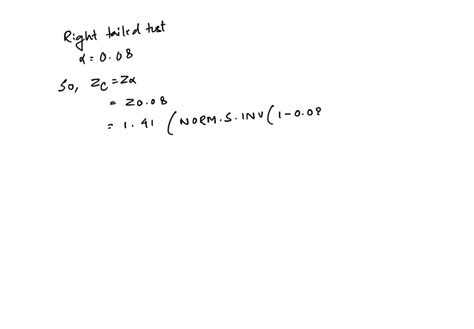 Right tailed test
α = 0.08
So, Zc = Zα
= Z0.08
= 1.41 (NORM.S.INV(1-0.08